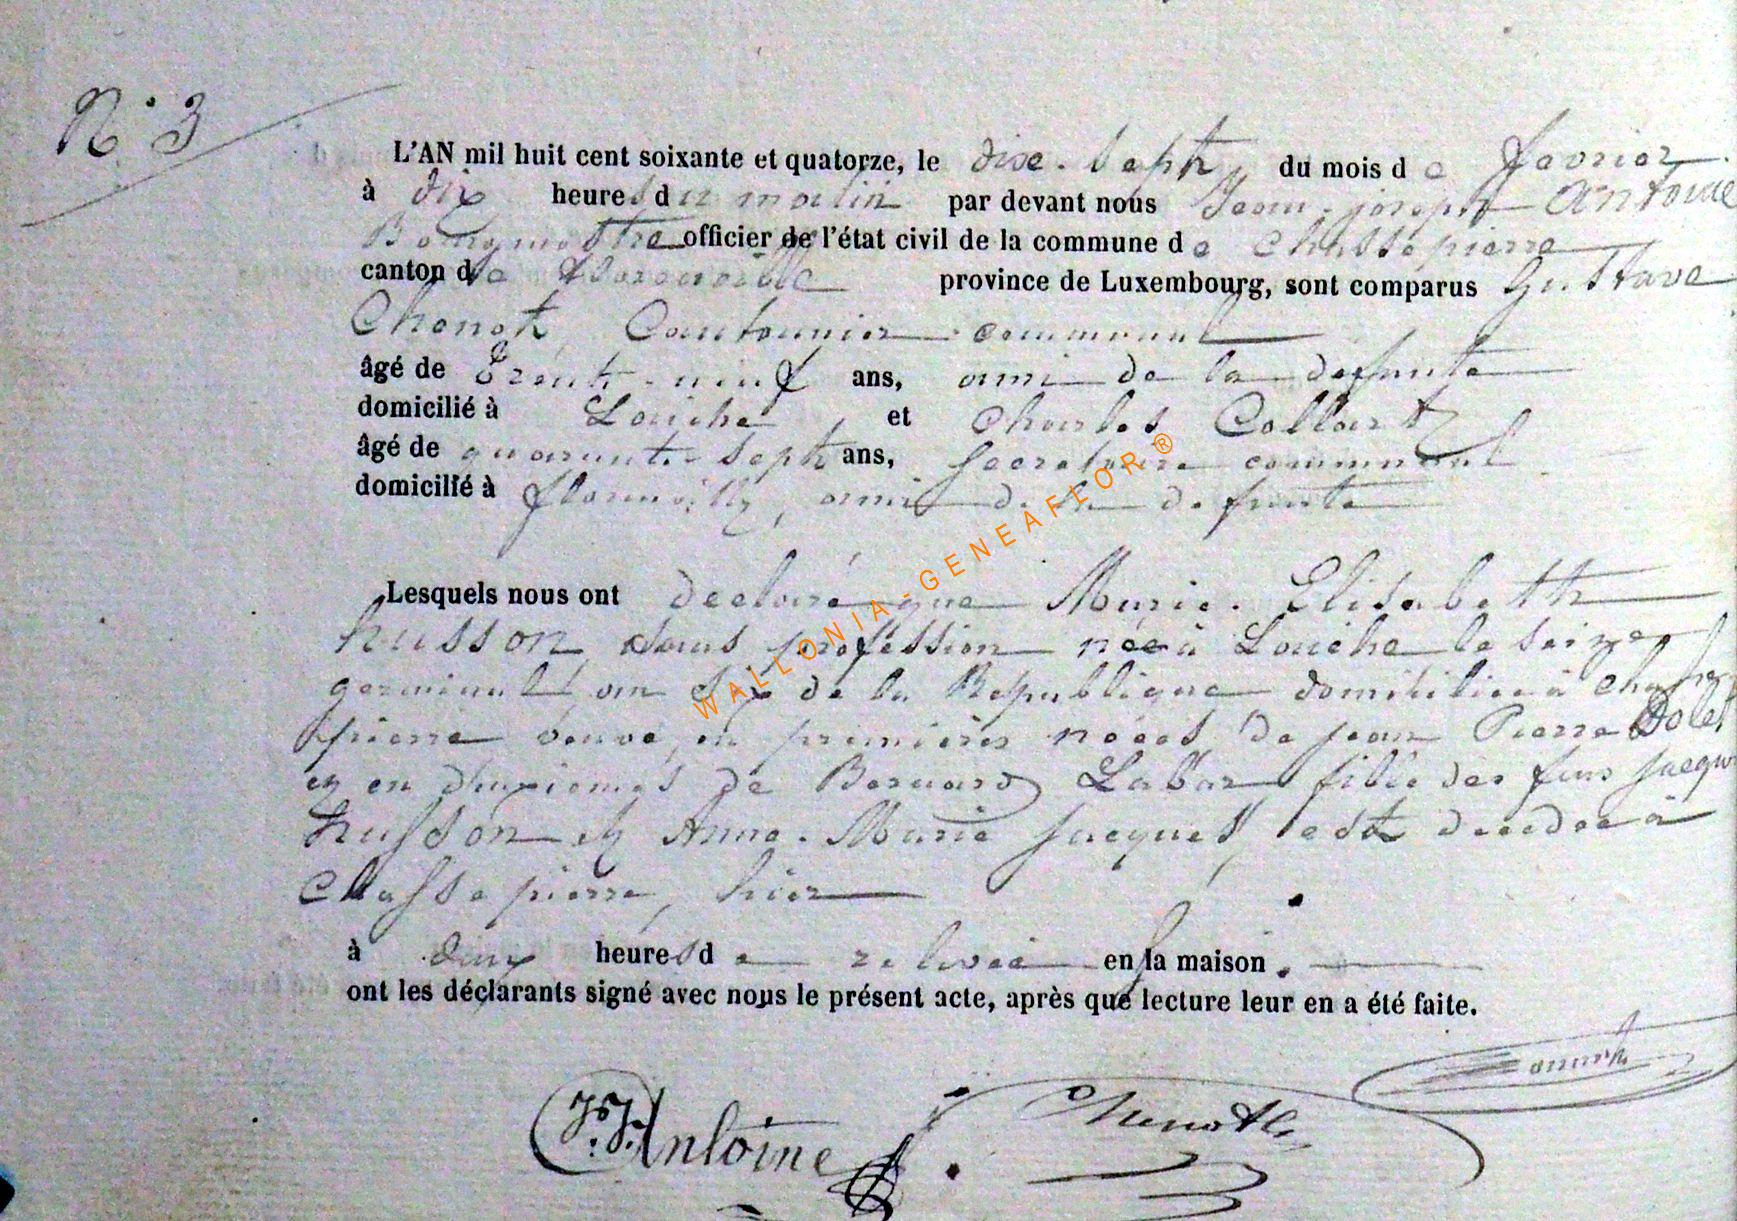 N° 3
L'AN mil huit cent soixante et quatorze, le dix-sept du mois de fevrier
à dix heures du matin par devant nous Jean-joseph Antoine
Bourgmestre officier de l'état civil de la commune de Chassepierre
canton de florenville province de Luxembourg, sont comparus Gustave
Chenot, Cantonnier communal
âgé de trente-neuf ans, ami de la defunte
domicilié à Laiche et Charles Collart
âgé de quarante-sept ans, secretaire communal
domicilié à florenville, ami de la defunte
Lesquels nous ont declaré que Marie-Elisabeth
husson, sans profession née à Laiche le seize
germinal, an de la Republique domiciliée à Chasse
pierre veuve, en premières noces de jean Pierre
et en deuxiemes de Bernard Labar, fille des feus jacques
husson et Anne-Marie jacques, est decedée à
Chassepierre, hier
à deux heures de relevée en sa maison.
ont les déclarants signé avec nous le présent acte, après que lecture leur en a été faite.
J.J. Antoine
Chenot
WALLONIA-GENEAFLOR ®